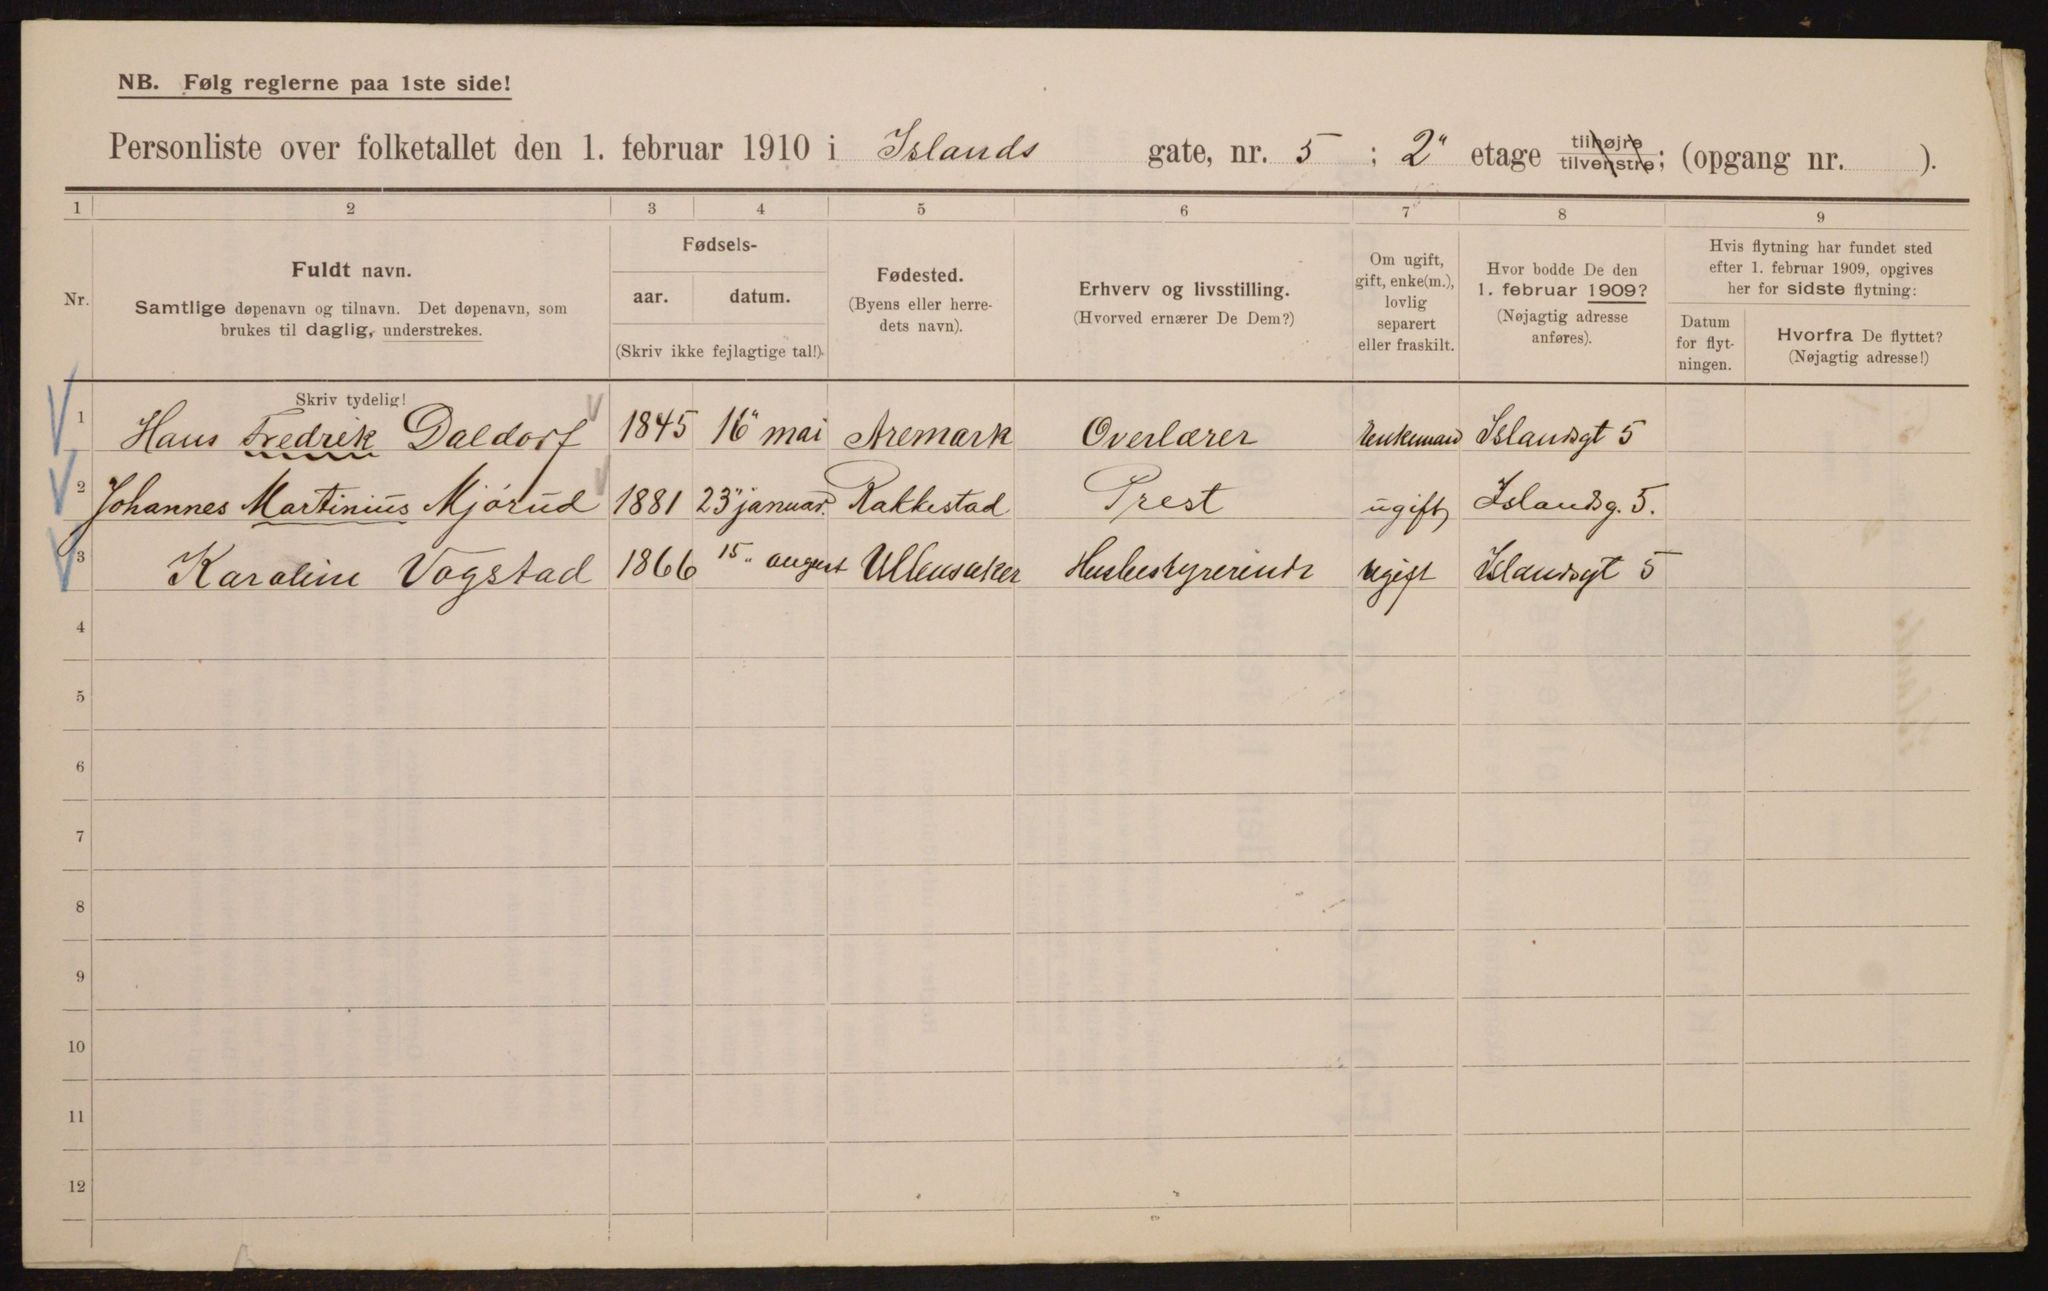 NB. Følg reglerne paa 1ste side!
Personliste over folketallet den 1. februar 1910 i Islands gate, nr. 5 ; 2" etage tilhøjre tilvenstre; (opgang nr. ).
1 2 3 4 5 6 7 8 9
Nr.
Fuldt navn.
Samtlige døpenavn og tilnavn. Det døpenavn, som
brukes til daglig, understrekes.
Fødsels-
aar. datum.
(Skriv ikke fejlagtige tal!).
Fødested.
(Byens eller herre-
dets navn).
Erhverv og livsstilling.
(Hvorved ernærer De Dem?)
Om ugift,
gift, enke(m.),
lovlig
separert
eller fraskilt.
Hvor bodde De den
1. februar 1909?
(Nøjagtig adresse
anføres).
Hvis flytning har fundet sted
efter 1. februar 1909, opgives
her for sidste flytning:
Datum
for flyt-
ningen.
Hvorfra De flyttet?
(Nøjagtig adresse!)
Skriv tydelig!
1 Hans Fredrik Daldorf 1845 16" mai Aremark Overlærer Enkemand Islandsgt 5
2 Johannes Martinius Mjørud 1881 23" januar. Rakkestad Prest ugift, Islandsg. 5.
3 Karoline Vogstad 1866 15" august Ullensaker Husbestyrerinde ugift Islandsgt 5
4
5
6
7
8
9
10
11
12